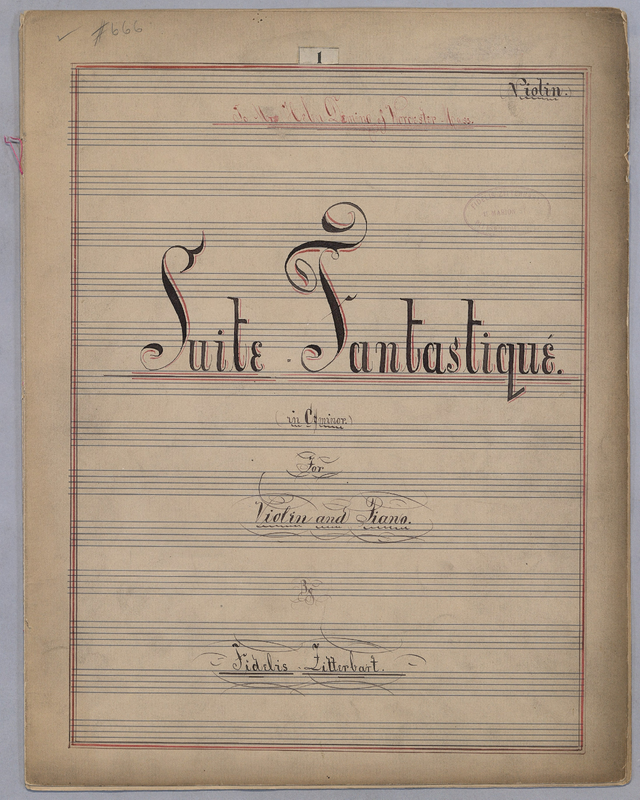 ✓ #666
1
(Violin.)
To Mrs of Worcester Mass.
Suite - Fantastiqué.
(in C# minor.)
For
Violin and Piano.
By
Fidelis - Zitterbart.